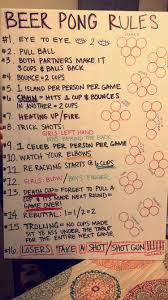 BEER PONG RULES
#1. EYE TO EYE
2. PULL BALL
#3. BOTH PARTNERS MAKE IT
3 CUPS & BALLS BACK
#4. BOUNCE = 2 CUPS
#5. 1 ISLAND PER PERSON PER GAME
#6. CHAIN = HITS 1 CUP & BOUNCES
IN ANOTHER = 2 CUPS
#7. HEATING UP/FIRE
#8. TRICK SHOTS:
GIRLS-LEFT HAND
BEHIND THE BACK
#9. 1 CELEB PER PERSON PER GAME
#10. WATCH YOUR ELBOWS
#11. RE RACKING STARTS @ 6 CUPS
#12. GIRLS: BLOW / BOYS: FINGER
#13. DEATH CUP = FORGET TO PULL A
CUP & IT'S MADE NEXT ROUND =
GAME OVER!
#14. REBUTTAL: 1=1/2=2
#15. TROLLING = NO CUPS MADE
AND ASS UNDER THE TABLE
FOR THE ENTIRE NEXT GAME
#16. LOSERS: TAKE A SHOT/SHOT GUN!!!!